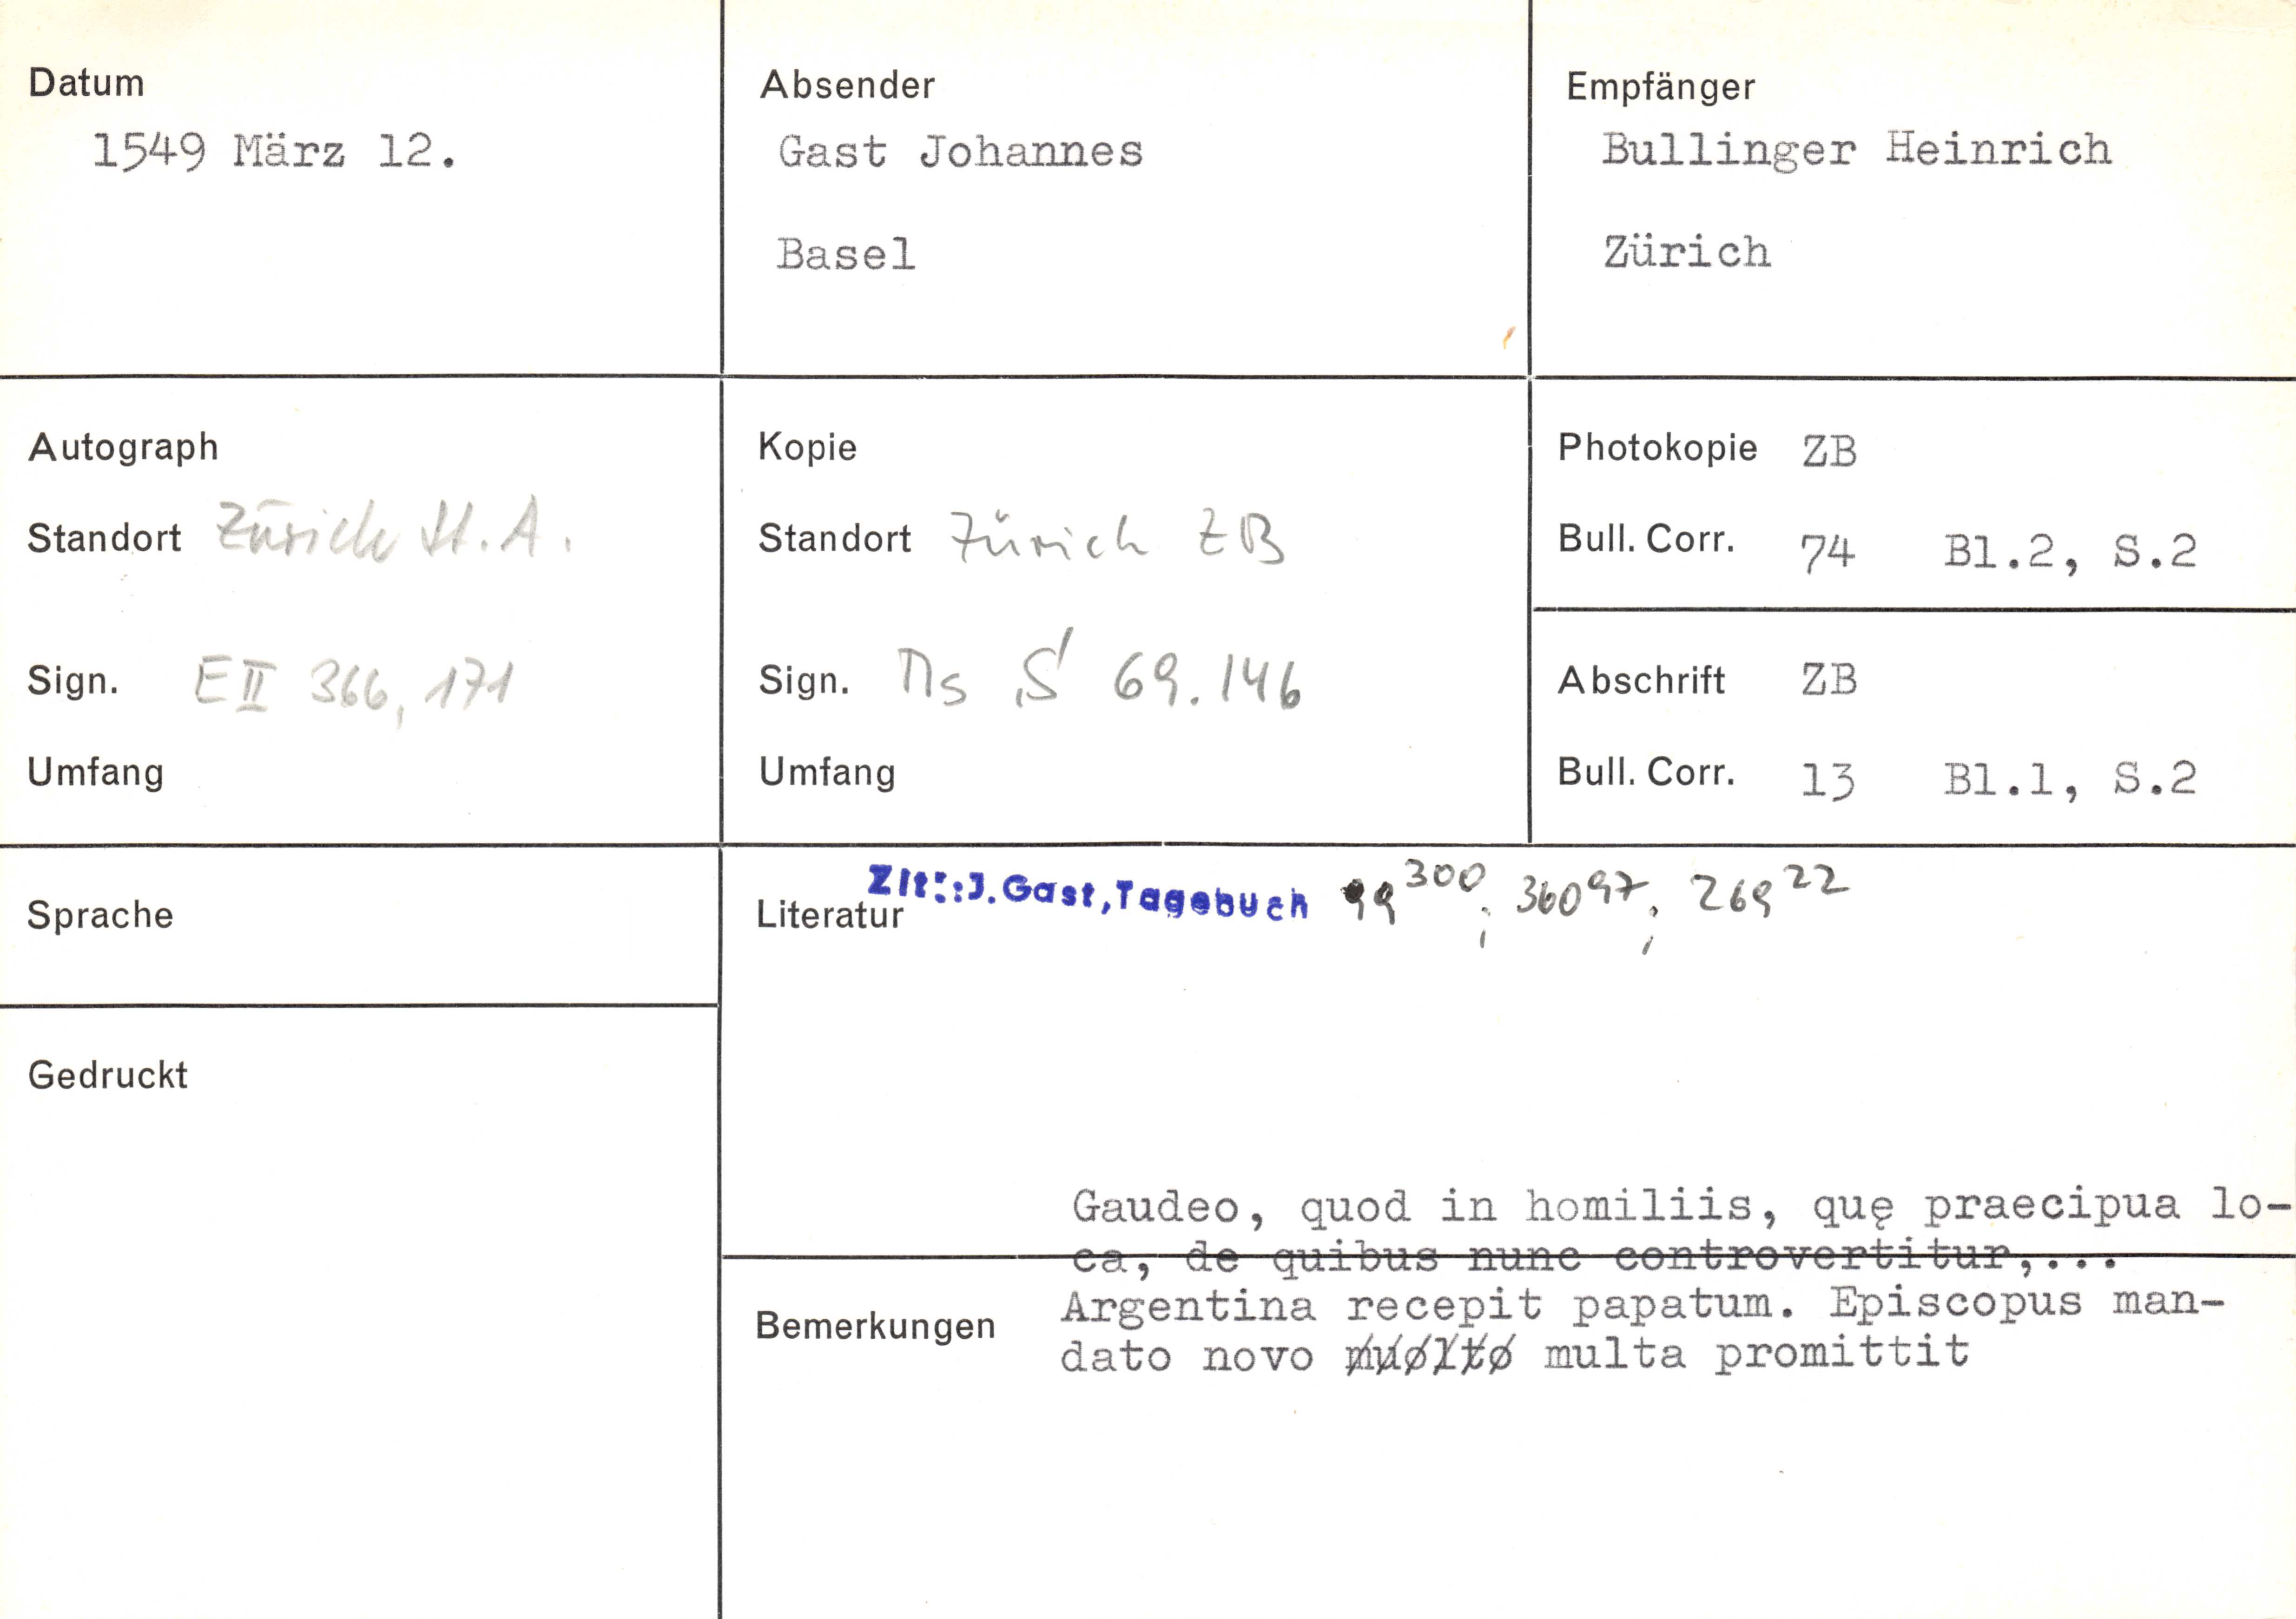 Datum
1549 März 12.
Absender
Gast Johannes
Basel
Empfänger
Bullinger Heinrich
Zürich
Autograph
Standort Zürich St.A.
Sign. E II 366, 171
Umfang
Kopie
Standort Zürich ZB
Sign. Ms S 69.146
Umfang
Photokopie ZB
Bull. Corr. 74 Bl.2, S.2
Abschrift ZB
Bull. Corr. 13 Bl.1, S.2
Sprache
Gedruckt
Literatur Zit.:J.Gast,Tagebuch 99³⁰⁰; 360⁹⁷; 269²²
Gaudeo, quod in homiliis, quę praecipua lo-
ca, de quibus nunc controvertitur,...
Bemerkungen Argentina recepit papatum. Episcopus man-
dato novo multa promittit